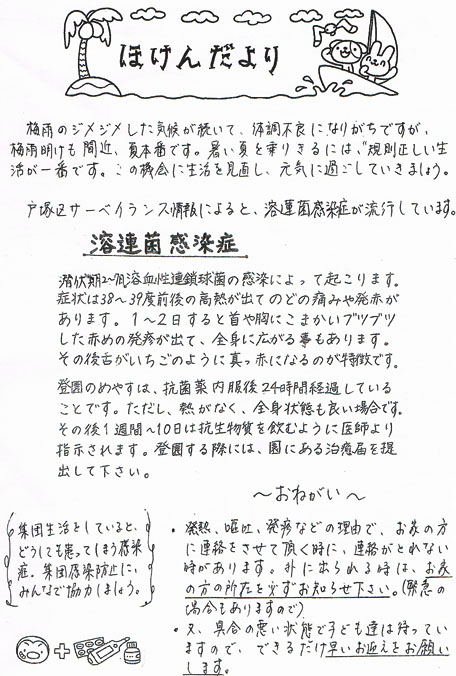 ほけんだより
梅雨のジメジメした気候が続いて、体調不良になりがちですが、
梅雨明けも間近、夏本番です。暑い夏を乗りきるには、"規則正しい生
活が一番です。この機会に生活を見直し、元気に過ごしていきましょう。
戸塚区サーベイランス情報によると、溶連菌感染症が流行しています。
溶連菌感染症
潜伏期2~7日溶血性連鎖球菌の感染によって起こります。
症状は38~39度前後の高熱が出てのどの痛みや発赤が
あります。1~2日すると首や胸にこまかいブツブツ
した赤めの発疹が出て、全身に広がる事もあります。
その後舌がいちごのように真っ赤になるのが特徴です。
登園のめやすは、抗菌薬内服後24時間経過している
ことです。ただし、熱がなく、全身状態も良い場合です。
その後1週間~10日は抗生物質を飲むように医師より
指示されます。登園する際には、園にある治癒届を提
出して下さい。
~おねがい~
集団生活をしていると、
どうしても患ってしまう感染
症。集団感染防止に、
みんなで協力しましょう。
・発熱、嘔吐、発疹などの理由で、お家の方
に連絡をさせて頂く時に、連絡がとれない
時があります。外に出られる時は、お家
の方の所在を必ずお知らせ下さい。(緊急の
場合もありますので)
・又、具合の悪い状態で子ども達は待ってい
ますので、できるだけ早いお迎えをお願い
します。